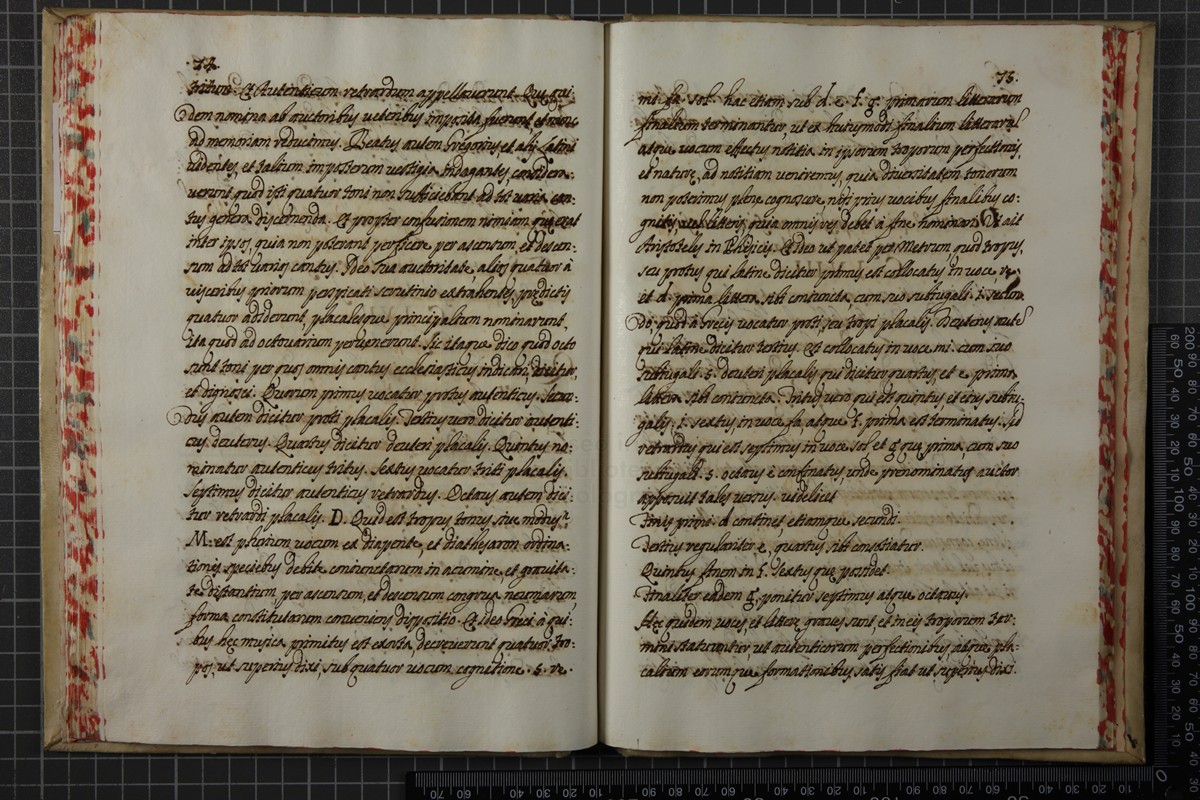 74.
tritum. Et Autenticum retrardum appellaverunt. Que qui-
dem nomina ab auctoribus veteribus imposita fuerunt et nunc
ad memoriam reducimus. Beatus autem Gregorius, et alij Latini
videntes, et talium impositorum vestigia indagantes, considera-
verunt quod isti quatuor toni non sufficiebant ad tot varia can-
tus genera disconenda. Et propter confusionem nimiam que erat
inter ipsos, quia non poterant perficere per ascensum et descen-
sum ad tot varios cantus. Ideo sua auctoritate alios quatuor à
visceribus priorum perspicati scrutinio extrahentes, predictis
quatuor addiderunt, placalesque principalium nominarunt,
ita quod ad octonarium pervenerunt. Sic itaque dico quod octo
sunt toni per quos omnis cantus ecclesiasticus indicari, dicitur,
et dignosci. Quorum primus vocatur protus autenticus. Secun-
dus autem dicitur proti placalis. Tertius vero dicitur autenti-
cus deuterus. Quartus dicitur deuteri placalis. Quintus no-
minatur autenticus tritus. Sextus vocatur triti placalis.
Septimus dicitur autenticus retrardus. Octavus autem dici-
tur retrardi placalis. D. Quid est tropus tonus sive modus?
M. est plurium vocum ex diapente, et diathesaron ordina-
tionis speciebus debite coniunctarum in acumine, et gravita-
te distantium per ascensum, et descensum congrua neumarum
forma constitutarum conveniens dispositio. Et ideo Greci à qui-
bus hec musica primitus est exorta, decreverunt quatuor tro-
pos, ut superius dixi, sub quatuor vocum cognitione. s. re.
75.
mi. fa. sol. hac etiam sub d. e. f. g. primarum litterarum
finalium terminantur, ut ex huiusmodi finalium litterarum
atque vocum effectus notitia in ipsorum troporum perfectionis,
et nature, ad notitiam veniremus, quia diversitatem tonorum
non possimus plene cognoscere nisi prius vocibus finalibus co-
gnitis, vel litteris, quia omnis res debet à fine nominari. Ut ait
Aristotelis in Phisicis. Et ideo ut patet per Metrum, quod tropus,
seu protus qui latine dicitur primus est collocatus in voce re,
et d. prima littera sibi coniuncta, cum suo subiugali .i. secun-
do, quod à Grecis vocatur proti, seu tropi placalis. Deuterus aute
qui latine dicitur tertius est collocatus in voce mi. cum suo
subiugali. s. deuteri placalis qui dicitur quartus, et e prima
littera sibi coniuncta. Tritus vero qui est quintus et eius subiu-
galis .i. sextus in voce fa atque f. prima est terminatus. Sed
retrardus qui est septimus in voce sol et g que prima, cum suo
subiugali. s. octavo è confinatus, unde prenominatus auctor
apposuit tales versus. videlicet
Finis primi. d continet, etiamque secundi.
Tertius regulariter e, quartus sibi consotiatur.
Quintus finem in f. Sextus que possidet.
Finaliter eadem g ponitur septimus atque octavus.
Hec quidem voces, et littere graves sunt, et in eis troporum ter-
mini statuuntur, ut autenticorum perfectionibus, atque pla-
calium eorumque formationibus satis fiat ut superius dixi.